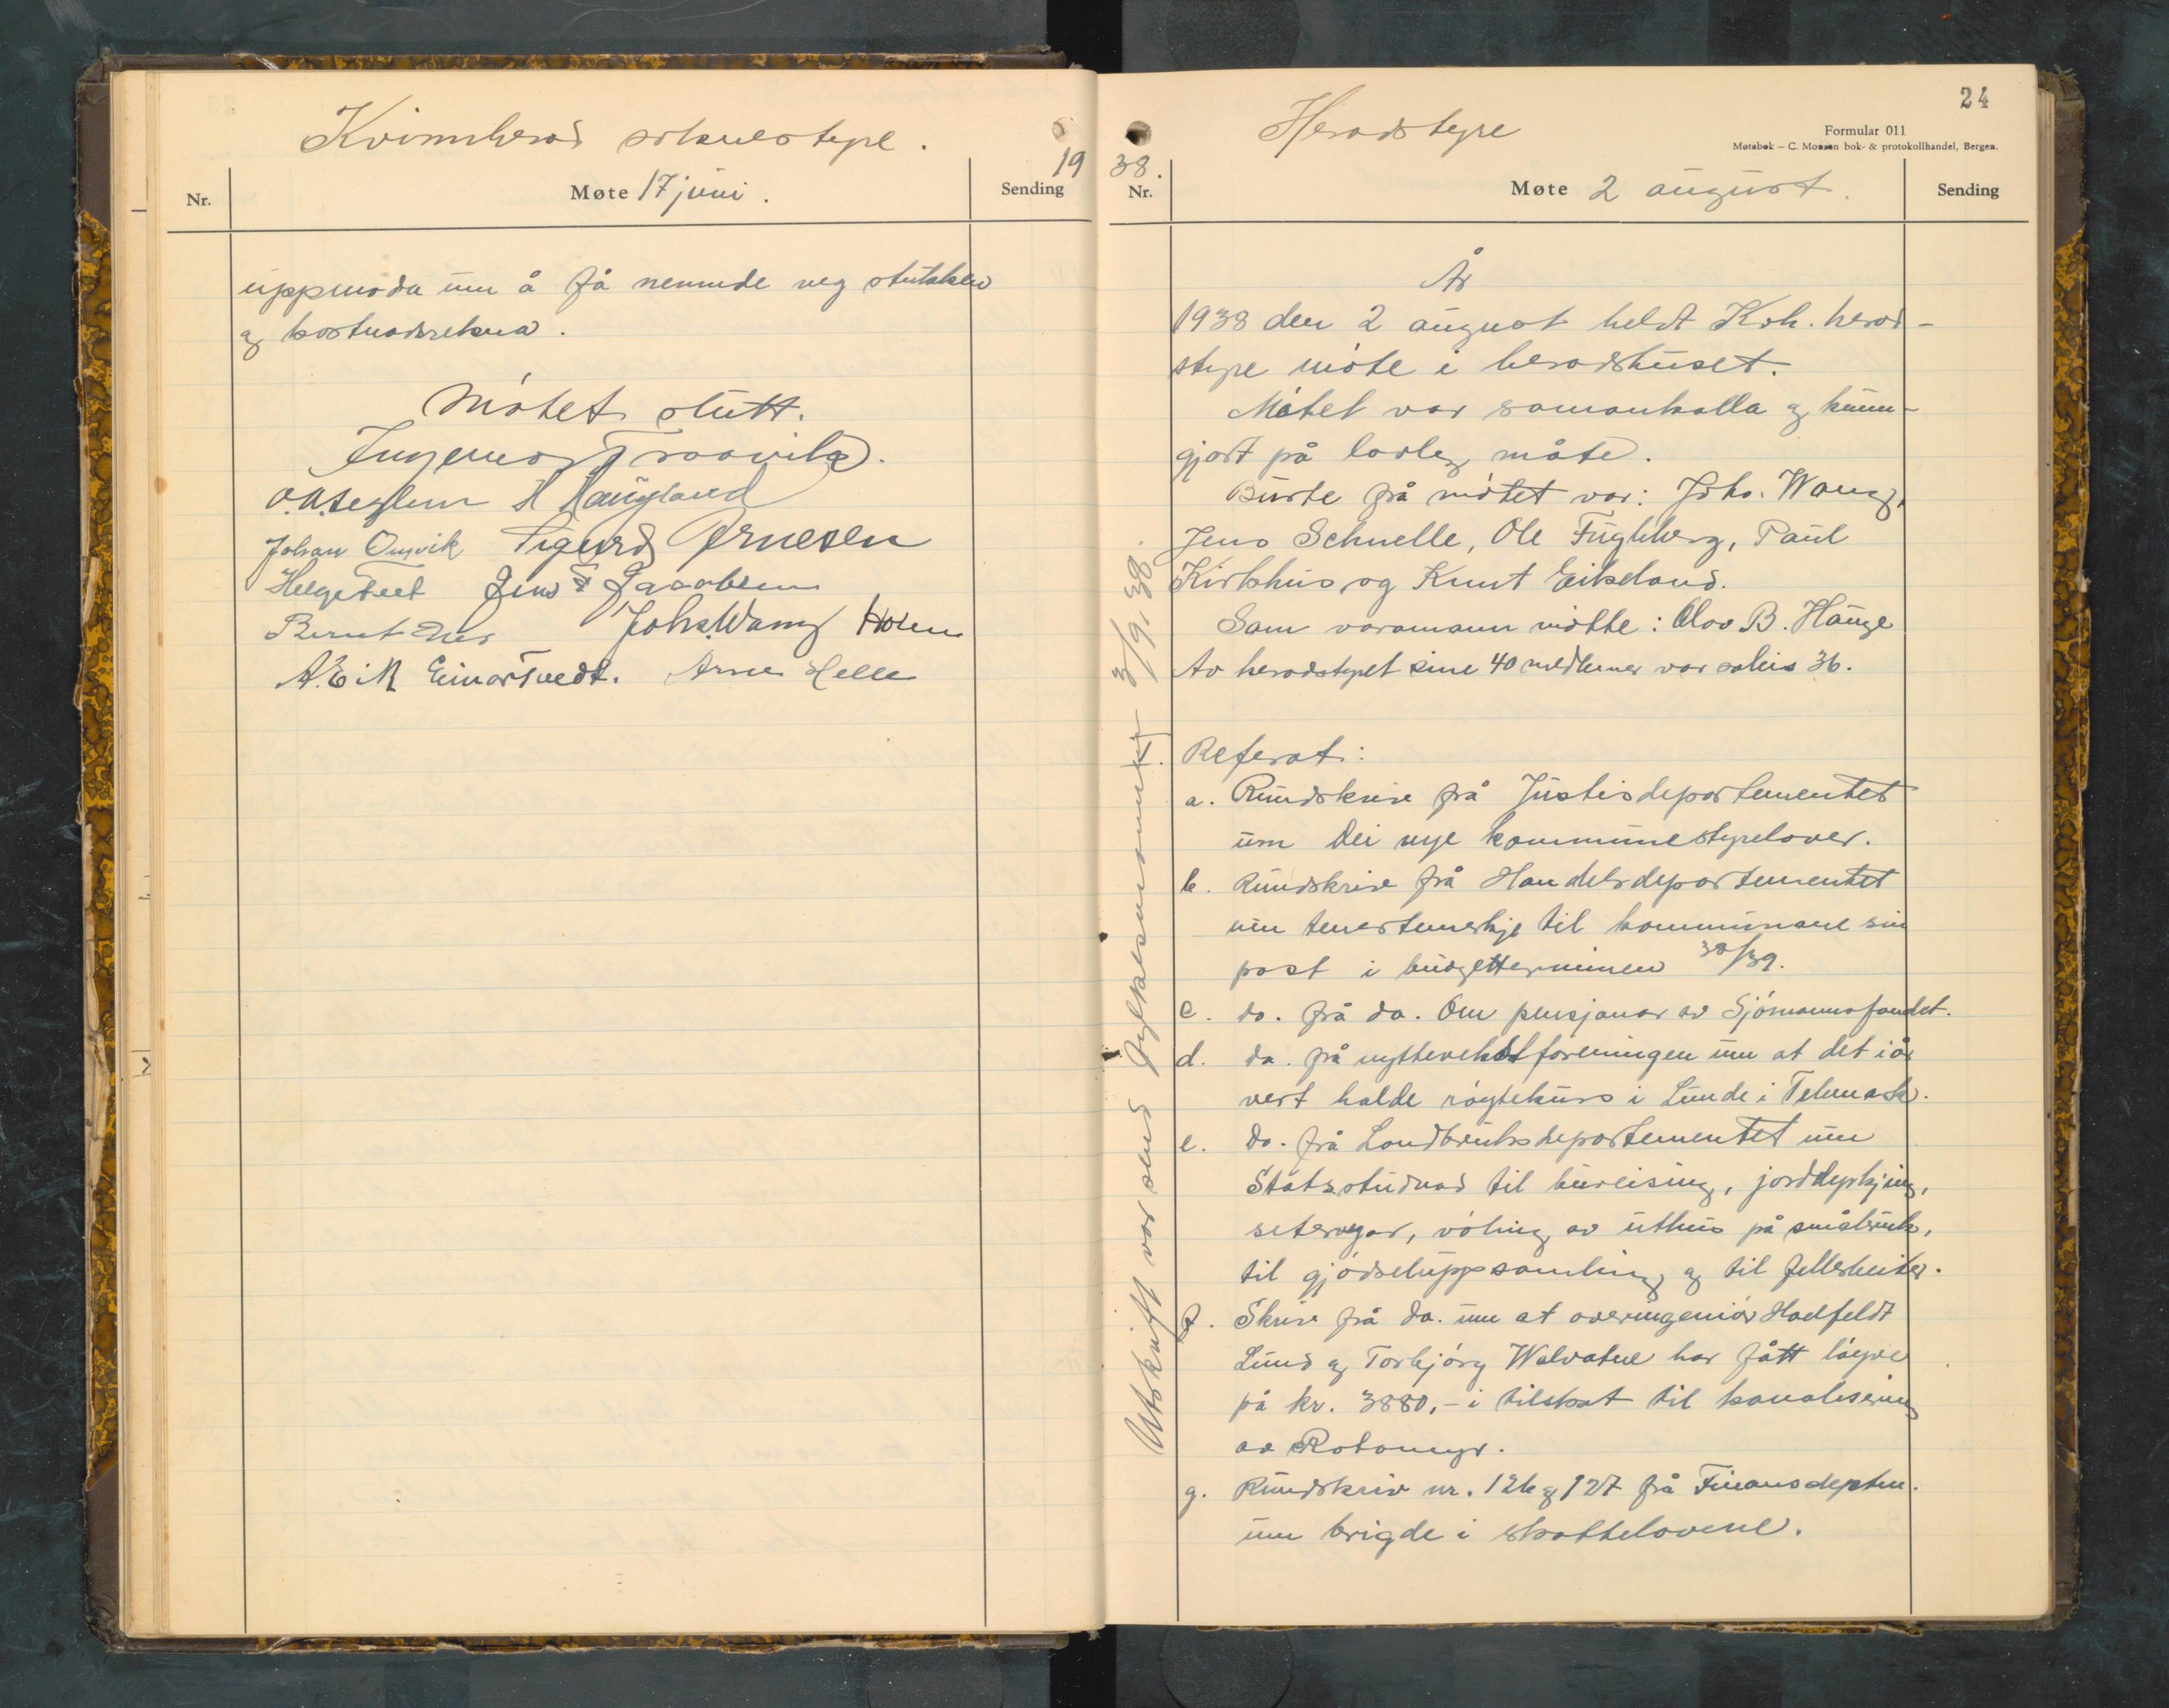 Kvinnherad soknestyre.
19
Nr.
Møte 17 juni.
Sending
uppmoda um å få nemnde veg stukken
og kostnadsrekna.
Møtet slutt.
Ingemar Traavik.
O. A. Seglem H Haugland
Johan Omvik Sigurd Arnesen
Helge Teet Jens Jacobsen
Bernt Johs. Wang Holm
A. Eik Einar Tvedt. Arne Helle
Heradstyre
24
Formular 011
Møtebok – C. Monsen bok- & protokollhandel, Bergen.
38.
Nr.
Møte 2 august.
Sending
År
1938 den 2 august heldt Kvh. herad-
styre møte i heradshuset.
Møtet var samankalla og kunn-
gjort på lovleg måte.
Burte frå møtet var: Johs. Wang,
Jens Schnelle, Ole Fuglberg, Paul
Kirkhus og Knut Eikeland.
Som varamann møtte: Olav B. Hauge
Av heradstyret sine 40 medlemer var soleis 36.
Referat:
a. Rundskriv frå Justisdepartementet
um dei nye kommunestyrelover.
b. Rundskriv frå Handelsdepartementet
um tenestemerkje til kommunane sin
post i budgetterminen 38/39.
c. do. frå do. Om pensjonar av Sjømannsfondet.
d. do. frå nyttevekstforeningen um at det i år
vert halde røgtekurs i Lunde i Telemark.
e. do. frå Landbruksdepartementet um
Statsstudnad til bureising, jorddyrkjing,
setervegar, vøling av uthus på småbruk,
til gjødseluppsamling og til fellesbeiter.
f. Skriv frå do. um at overingeniør Hoelfeldt
Lund og Torbjørg Valvatne har fått løyve
på kr. 3880,- i tilskot til kanalisering
av Rotamyr.
g. Rundskriv nr. 126 og 127 frå Finansdeptm.
um brigde i skattelovene.
Utskrift var send fylkesmannen 3/9. 38.